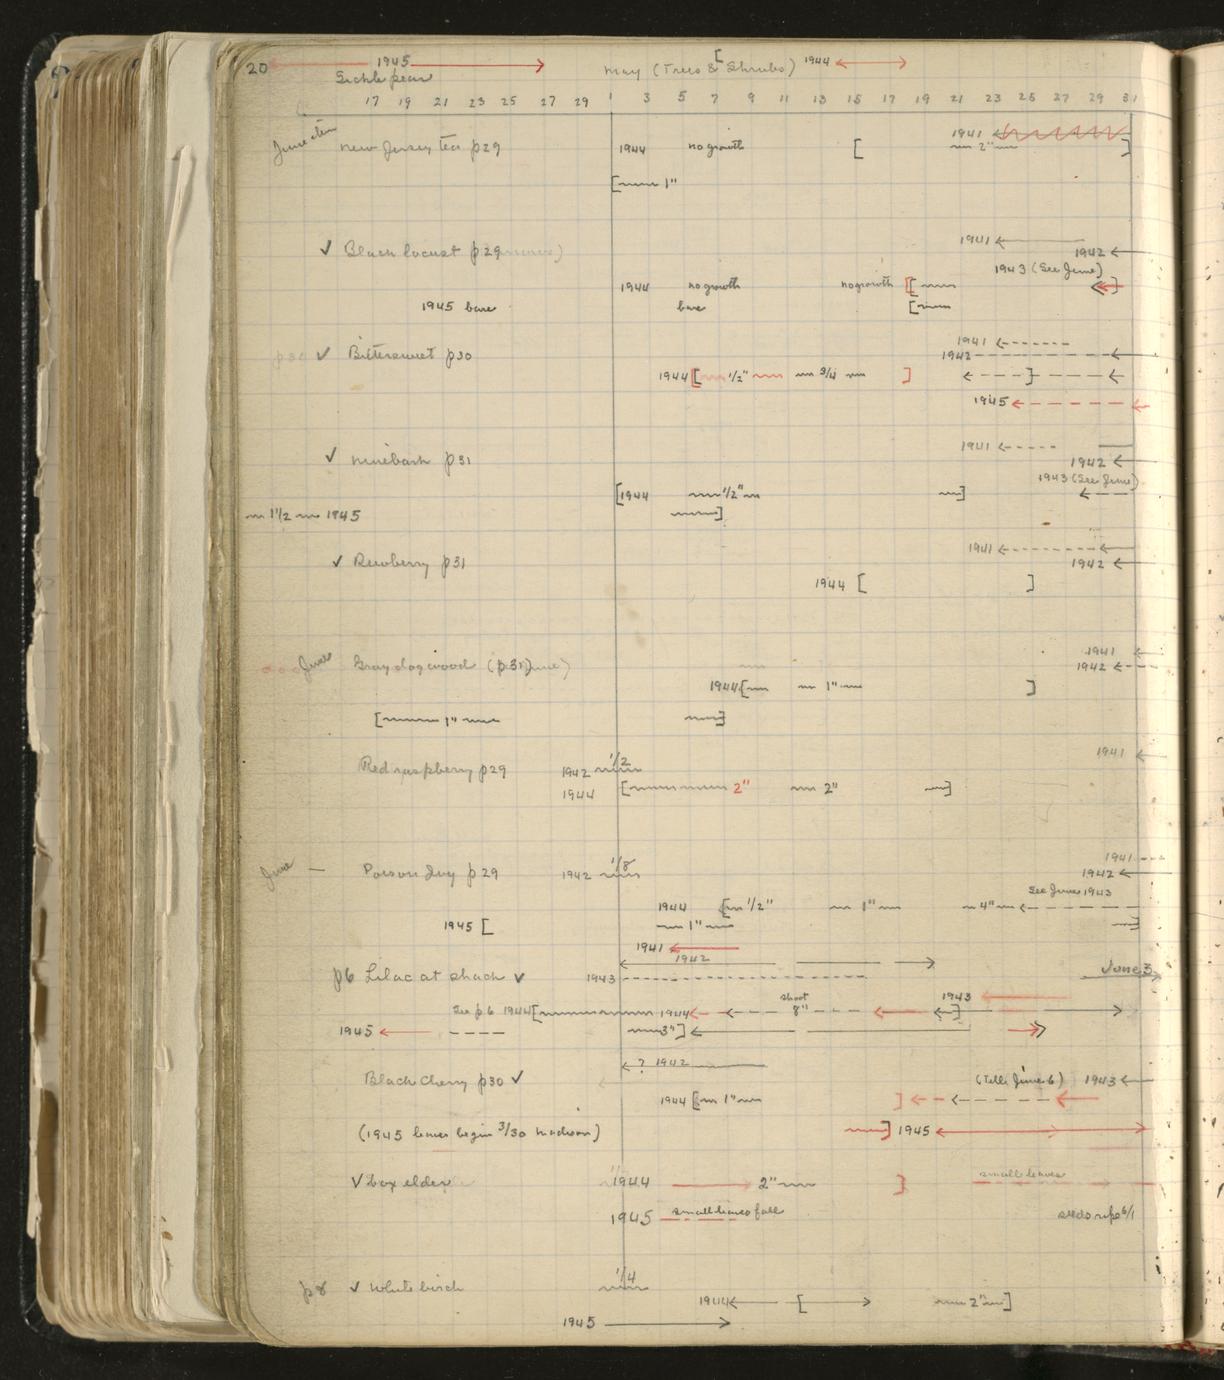 20 1945 May (Trees & Shrubs) 1944
Sickle pear
17 19 21 23 25 27 29 1 3 5 7 9 11 13 15 17 19 21 23 25 27 29 31
1941
June New Jersey tea p29 1944 no growth [ 2" ]
[ 1"
1941
✓ Black locust p29 1942
1943 (See June)
1944 no growth no growth [ ]
1945 bare bare [
1941
p30 ✓ Bittersweet p30 1942
1944 [ 1/2" 3/4 ] ]
1945
1941
✓ Ninebark p31 1942
1943 (See June)
[ 1944 1/2" ]
1 1/2 1945 ]
1941
✓ Dewberry p31 1942
1944 [ ]
1941
June Gray dogwood (p31 June) 1942
1944 [ 1" ]
[ 1" ]
1941
Red raspberry p29 1942 1/2
1944 [ 2" 2" ]
1941
June — Poison Ivy p29 1942 1/8 1942
See June 1943
1944 [ 1/2" 1" 4"
1945 [ 1" ]
1941
1942
p6 Lilac at shack ✓ 1943 June 3
See p6 1944 [ 1944 shoot 8" 1943 ]
1945 3" ]
? 1942
Black Cherry p30 ✓ (Tell: June 6) 1943
1944 [ 1" ]
(1945 leaves begin 3/30 Madison) ] 1945
✓ box elder 1944 2" ] small leaves
1945 small leaves fall seeds ripe 6/1
p8 ✓ White birch 1/4
1944 [ 2" ]
1945